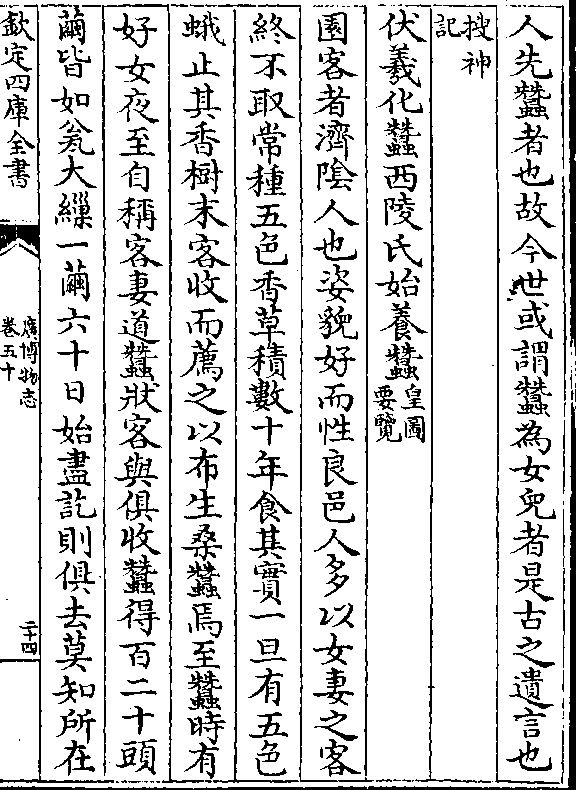 人先蠶者也故今世或謂蠶為女兒者是古之遺言也
搜神
記
伏羲化蠶西陵氏始養蠶皇圖
要覽
園客者濟隂人也姿貌好而性良邑人多以女妻之客
終不取常種五色香草積數十年食其實一旦有五色
蛾止其香樹末客收而薦之以布生桑蠶焉至蠶時有
好女夜至自稱客妻道蠶狀客與俱收蠶得百二十頭
繭皆如瓮大繅一繭六十日始盡訖則俱去莫知所在
欽定四庫全書
廣博物志
卷五十
二十四